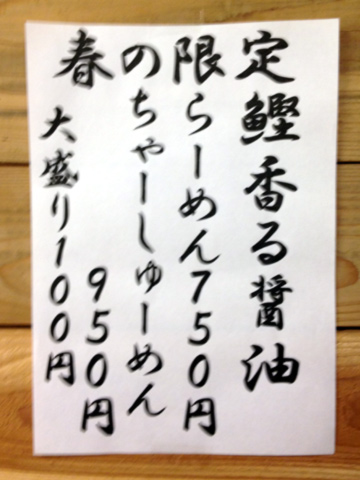 定鰹香る醤油
限らーめん750円
のちゃーしゅーめん
950円
春 大盛り100円